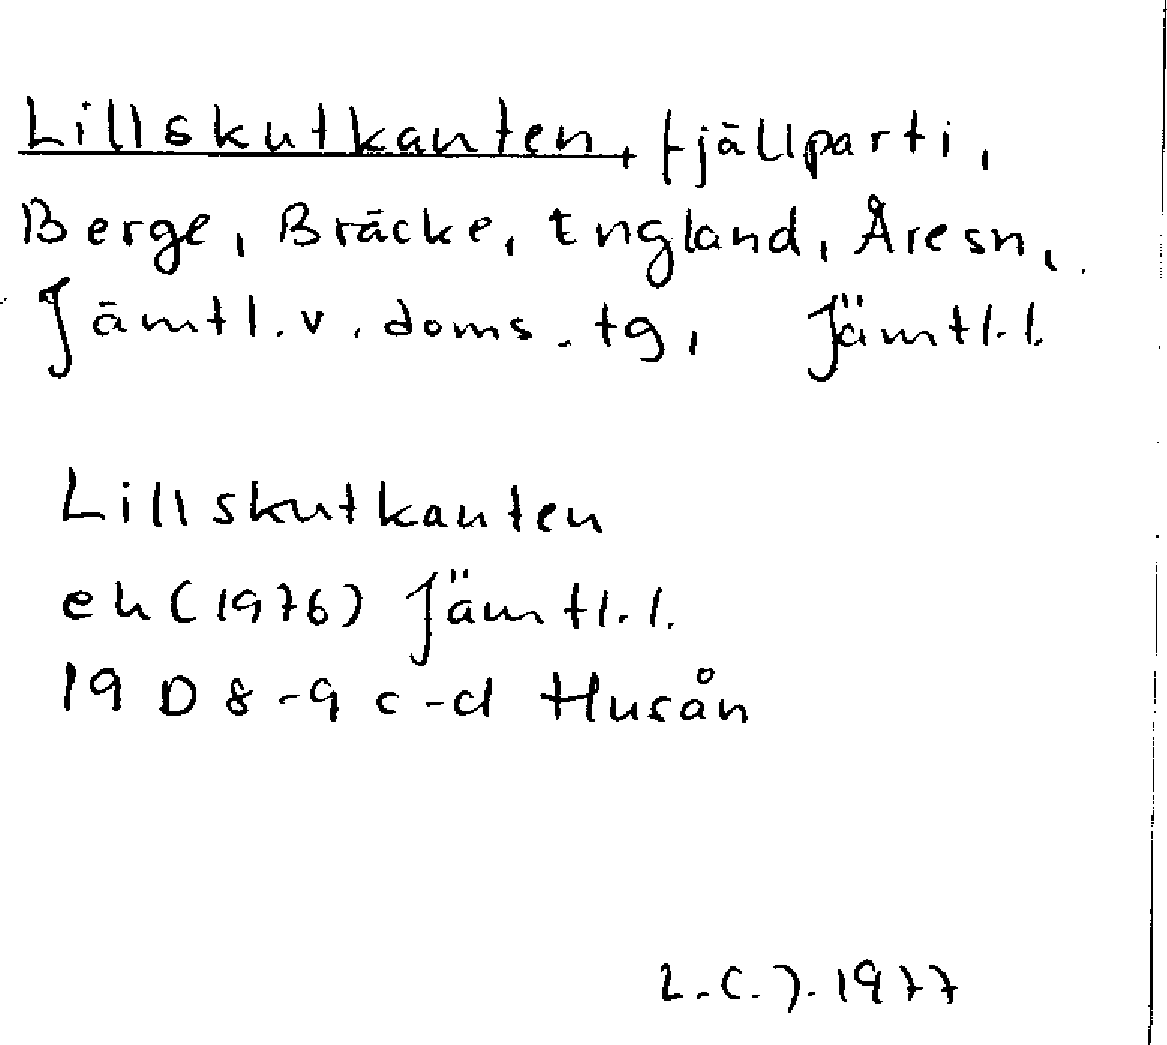 Lillskutkanten, fjällparti,
Berge, Bräcke, England, Åresn,
Jämtl. v. doms. tg, Jämtl. l.
Lillskutkanten
ek (1976) Jämtl. l.
19 D 8-9 c-d Husån
L.C.J. 1977